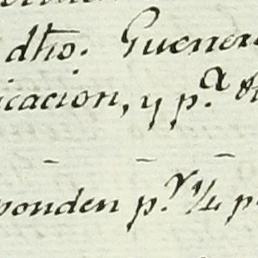 dho. Guerrero
icacion, y p.a
ponden p.r 1/4 p